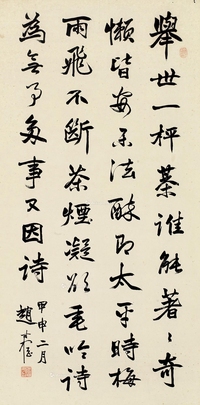 舉世一枰棊誰能著〻奇
懶皆安樂法醉即太平時梅
雨飛不斷茶煙凝欲垂吟詩
為無事多事又因詩
甲申二月
趙